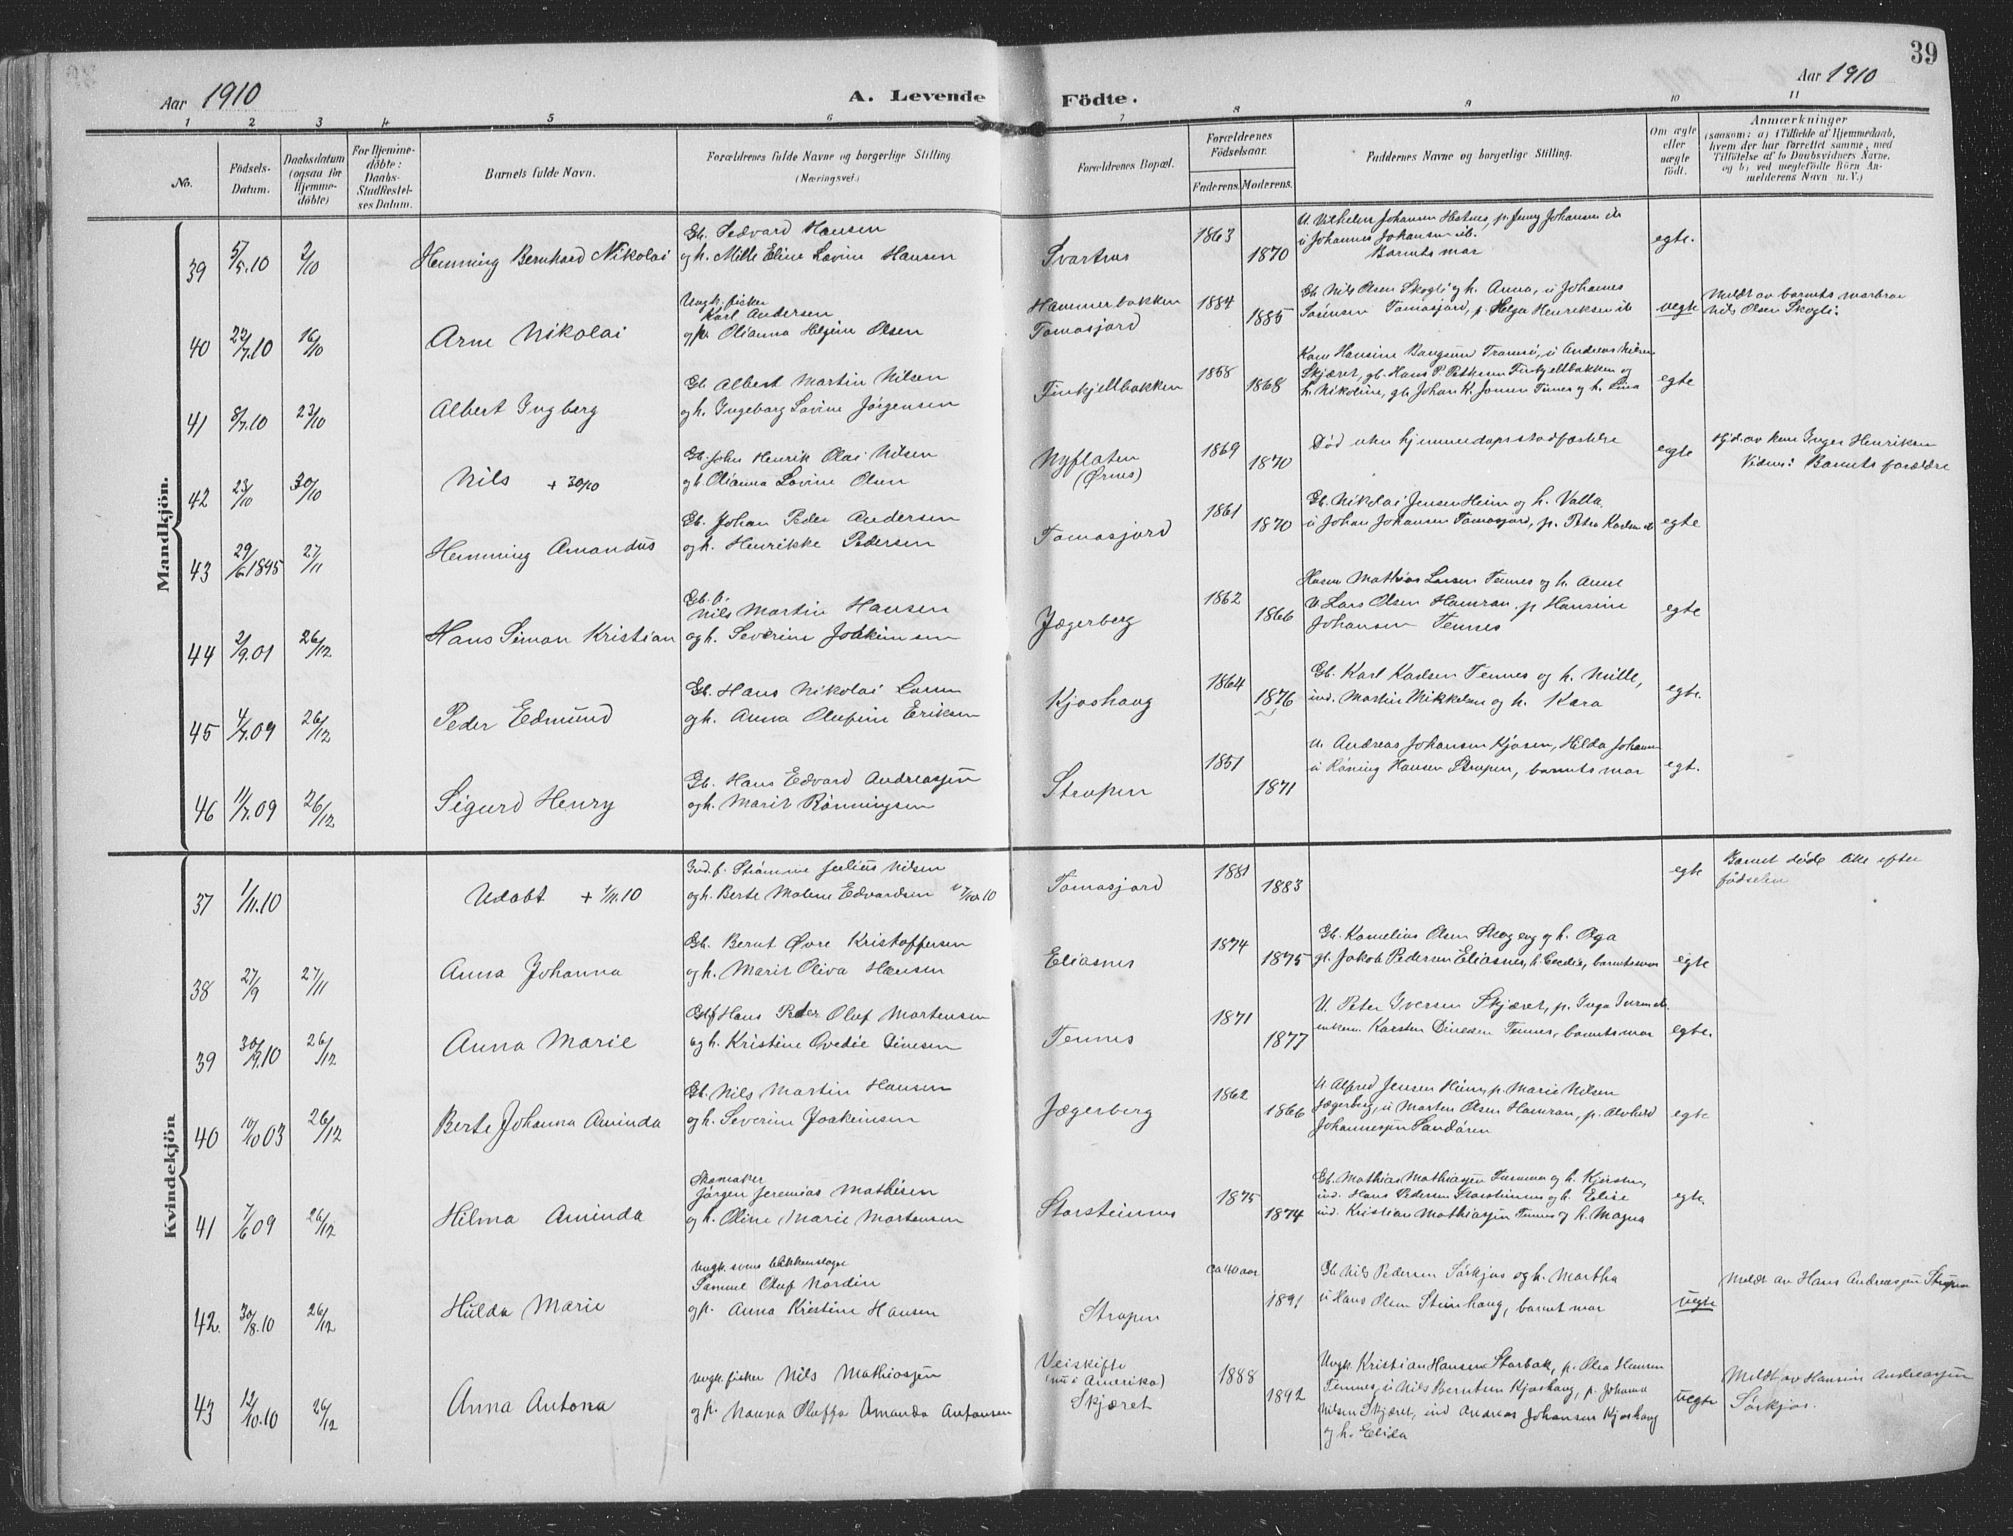 39
Aar 1910
A. Levende Födte.
Aar 1910
1 2 3 4 5 6 7 8 9 10 11
No.
Födsels-Datum.
Daabsdatum (ogsaa for Hjemme-döbte)
For Hjemme-döbte: Daabs-Stadfæstel-ses Datum.
Barnets fulde Navn.
Forældrenes fulde Navne og borgerlige Stilling (Næringsvei.)
Forældrenes Bopæl.
Forældrenes Födselsaar.
Faderens. Moderens.
Faddernes Navne og borgerlige Stilling.
Om ægte eller uægte födt.
Anmærkninger
(saasom: a) i Tilfælde af Hjemmedaab,
hvem der har forrettet samme, med
Tilföielse af to Daabsvidners Navne,
og b) ved uægtefödte Börn An-
melderens Navn m. V.)
Mandkjön.
39 5/5.10 2/10 Hemming Bernhard Nikolai
Gb. Sedvard Hansen
og h. Mille Eline Lovine Hansen
Svartnes 1863 1870
U. Vilhelm Johansen Hestnes, p. Jenny Johansen ib
u Johannes Johansen ib.
Barnets mor
egte.
40 22/7.10 16/10 Arne Nikolai
Ungk. fisker
Karl Andersen
og p. Olianna Helgine Olsen
Hammerbakken
Tomasjord
1884 1885
Gb. Nils Olsen Skogli og h. Anna, u Johannes
Sörensen Tomasjord, p. Helga Henriksen ib
uegte
Meldt av barnets morbror
Nils Olsen Skogli.
41 8/7.10 23/10 Albert Ingberg
Gb. Albert Martin Nilsen
og h. Ingeborg Lovine Jörgensen
Finkjeltbakken 1858 1868
Kone Hansine Bangsun Tromsö, u Andreas Nilsen
Skjæret, gb. Hans P. Pettersen Finkjeltbakken og
h. Nikoline, gb. Johan K. Jensen Tennes og h. Lina
egte
42 23/10 30/10 Nils + 30/10
Gb. John Henrik Olai Nilsen
og h. Olianna Lovine Olsen
Nyflaten
(Örnes)
1869 1870
Död uten hjemmedaapsstadfæstelse
egte
Hjd. av kone Inger Henriksen
Vidner: Barnets forældre
43 29/6 1895 27/11 Hemming Amandus
Gb. Johan Peder Andersen
og h. Henrikke Pedersen
Tomasjord 1861 1870
Gb. Nikolai Jensen Heim og h. Valla
u Johan Johansen Tomasjord, p. Petra Karlsen ib
egte
44 2/9.01 26/12 Hans Simon Kristian
Gb. f.
Nils Martin Hansen
og h. Severine Joakimsen
Jægerberg 1862 1866
Husm Mathias Larsen Tennes og h. Anne
U Lars Olsen Hamran, p. Hansine
Johansen Tennes
egte
45 4/7.09 26/12 Peder Edmund
Gb. Hans Nikolai Larsen
og h. Anna Olufine Eriksen
Kjoshaug 1864 1876
Gb. Karl Karlsen Tennes og h. Mille,
ind. Martin Mikkelsen og h. Kara
egte.
46 11/7.09 26/12 Sigurd Henry
Gb. Hans Edvard Andreassen
og h. Marit Rönningsen
Strupen 1851 1871
U. Andreas Johansen Kjosen, Hilda Johansen
u Röning Hansen Strupen, barnets mor
egt.
Kvindekjön
37 1/11.10 Udöbt + 1/11.10
Ind. f. Strömme Julius Nilsen
og h. Berte Malene Edvardsen v 7/10.10
Tomasjord 1881 1883
egte
Barnet döde like efter
födselen
38 27/9 27/11 Anna Johanna
Gb. Bernt Övre Kristoffersen
og h. Marit Oliva Hansen
Eliasnes 1874 1875
Gb. Kornelius Olsen Skogeng og h. Olga
gb. Jakob Pedersen Eliasnes, h. Cecilie, barnets mor
egte
39 30/9.10 26/12 Anna Marie
Gb. f Hans Peder Oluf Mortensen
og h. Kristine Ovedie Dinesen
Tennes 1871 1877
U. Peter Iversen Skjæret, p. Inga ib
enkem. Karsten Dinesen Tennes, barnets mor
egte.
40 10/10 03 26/12 Berte Johanna Aminda
Gb. Nils Martin Hansen
og h. Severine Joakimsen
Jægerberg 1862 1866
U Alfred Jensen Heim, p. Marie Nilsen
Jægerberg, u Morten Olsen Hamran, p. Alvhild
Johannessen Sandören
egte
41 7/6 09 26/12 Hilma Aminda
Skomaker
Jörgen Jeremias Mathisen
og h. Oline Marie Mortensen
Storsteinnes 1875 1874
Gb. Mathias Mathiassen og h. Kjersten,
ind. Hans Pedersen Storsteinnes og h. Elise
ind. Kristian Mathiassen Tennes og h. Magna
egte.
42. 30/8.10 26/12 Hulda Marie
Ungk. svensk blikkenslager
Samuel Oluf Nordin
og p. Anna Kristine Hansen
Strupen ca 40 aar 1891
Gb. Nils Pedersen Sörkjos og h. Martha
u Hans Olsen Steinhaug, barnets mor
uegte
Meldt av Hans Andreassen Strupen
43 12/10.10 26/12 Anna Antona
Ungk. fisker Nils Mathiassen
og p. Nanna Oluffa Amanda Antonsen
Veiskifte
(nu i Amerika)
Skjæret
1888 1892
Ungk. Kristian Hansen Storbak, p. Olea Hansen
Tennes, u Nils Berntsen Kjoshaug, p. Johanna
Nilsen Skjæret, ind Andreas Johansen Kjoshaug
og h. Elida
uegte
Meldt av Hansine Andreassen
Sörkjos.